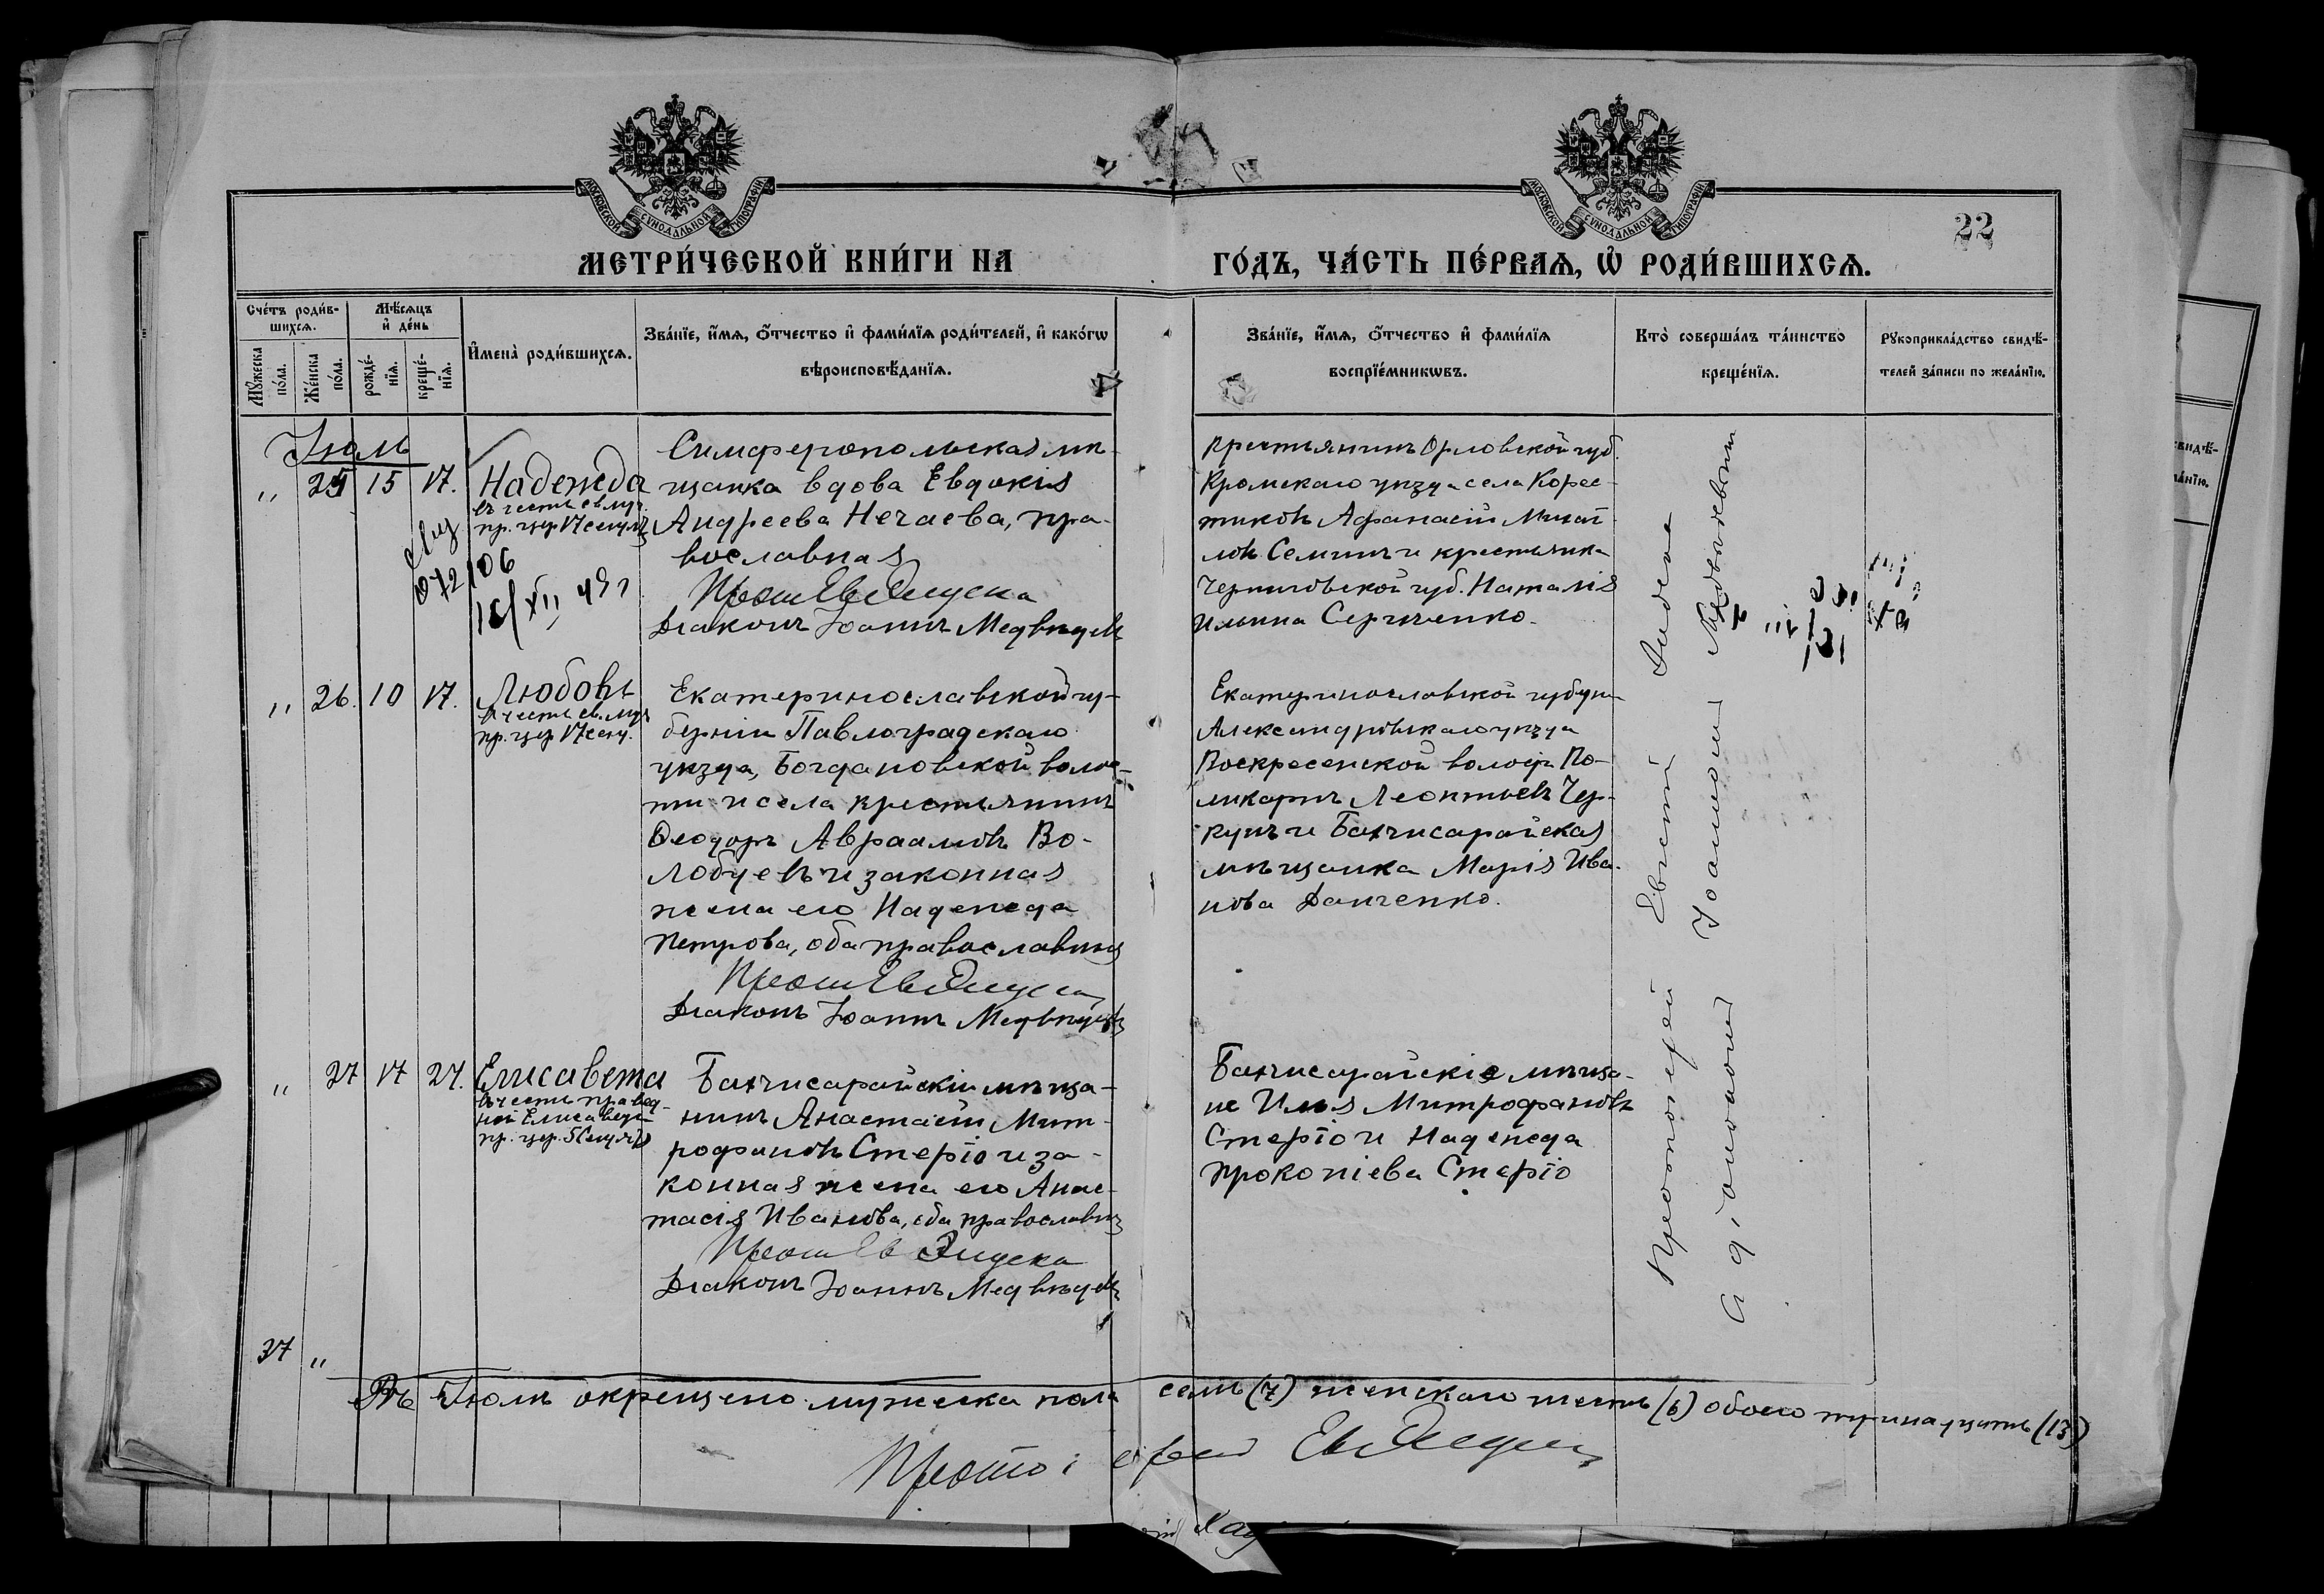 МОСКОВСКОЙ СѴНОДАЛЬНОЙ ТИПОГРАФІИ
МОСКОВСКОЙ СѴНОДАЛЬНОЙ ТИПОГРАФІИ
22
МЕТРИ́ЧЕСКОЙ КНИ́ГИ НА
ГО́ДЪ, ЧА́СТЬ ПЕ́РВАЯ, Ѡ РОДИ́ВШИХСѦ.
Сче́тъ роди́в-
шихсѧ.
Мꙋ́жеска
по́ла.
Же́нска
по́ла.
Мѣ́сѧцъ
и҆ де́нь
рожде́-
нїѧ.
креще́-
нїѧ.
И҆мена̀ роди́вшихсѧ.
Зва́нїе, и҆́мѧ, ѻ҆́тчество и҆ фами́лїѧ роди́телей, и҆ како́гѡ
вѣроисповѣ́данїѧ.
Зва́нїе, и҆́мѧ, ѻ҆́тчество и҆ фами́лїѧ
воспрїе́мникѡвъ.
Кто̀ соверша́лъ та́инство
креще́нїѧ.
Рꙋкоприкла́дство свидѣ́-
телей за́писи по жела́нїю.
Іюль
" 25 15 17. Надежда
въ честь св. муч.
пр. цер. 17 сент.
072106
Симферопольская мѣ-
щанка вдова Евдокія
Андреева Нечаева, пра-
вославная
Прот. Ев. Эндека
Діаконъ Іоаннъ Медвѣдевъ
Крестьянинъ Орловской губ.
Кромскаго уѣзда села Корос-
тиковъ Афанасій Михаи-
ловъ Семинъ и крестьянка
Черниговской губ. Наталія
Ильина Сергиенко.
" 26. 10 17. Любовь
въ честь св. муч
пр. цер. 17 сент.
Екатеринославской гу-
берніи Павлоградскаго
уѣзда, Богдановской волос-
ти и села крестьянинъ
Ѳеодоръ Авраамовъ Во-
лобуевъ и законная
жена его Надежда
Петрова, оба православные
Прот. Ев. Эндека
Діаконъ Іоаннъ Медвѣдевъ
Екатеринославской губерн
Александровскаго уѣзда
Воскресенской волости По-
ликарпъ Леонтьевъ Чер-
кунъ и Бахчисарайская
мѣщанка Марія Ива-
нова Данченко.
" 27 17 27. Елисавета
въ честь правед-
ной Елисаветы
пр. цер. 5 Сент.
Бахчисарайскій мѣща-
нинъ Анастасій Мит-
рофановъ Стеріо и за-
конная жена его Анас-
тасія Иванова, оба православные
Прот. Ев. Эндека
Діаконъ Іоаннъ Медвѣдевъ
Бахчисарайскіе мѣща-
не Илья Митрофановъ
Стеріо и Надежда
Прокопіева Стеріо
Протоіерей Евгеній Эндека
съ діакономъ Іоанномъ Медвѣдевымъ
37 "
Въ Іюлѣ окрещено мужеска пола семь (7) женскаго шесть (6) обоего тринадцать (13)
Протоіерей Ев. Эндека